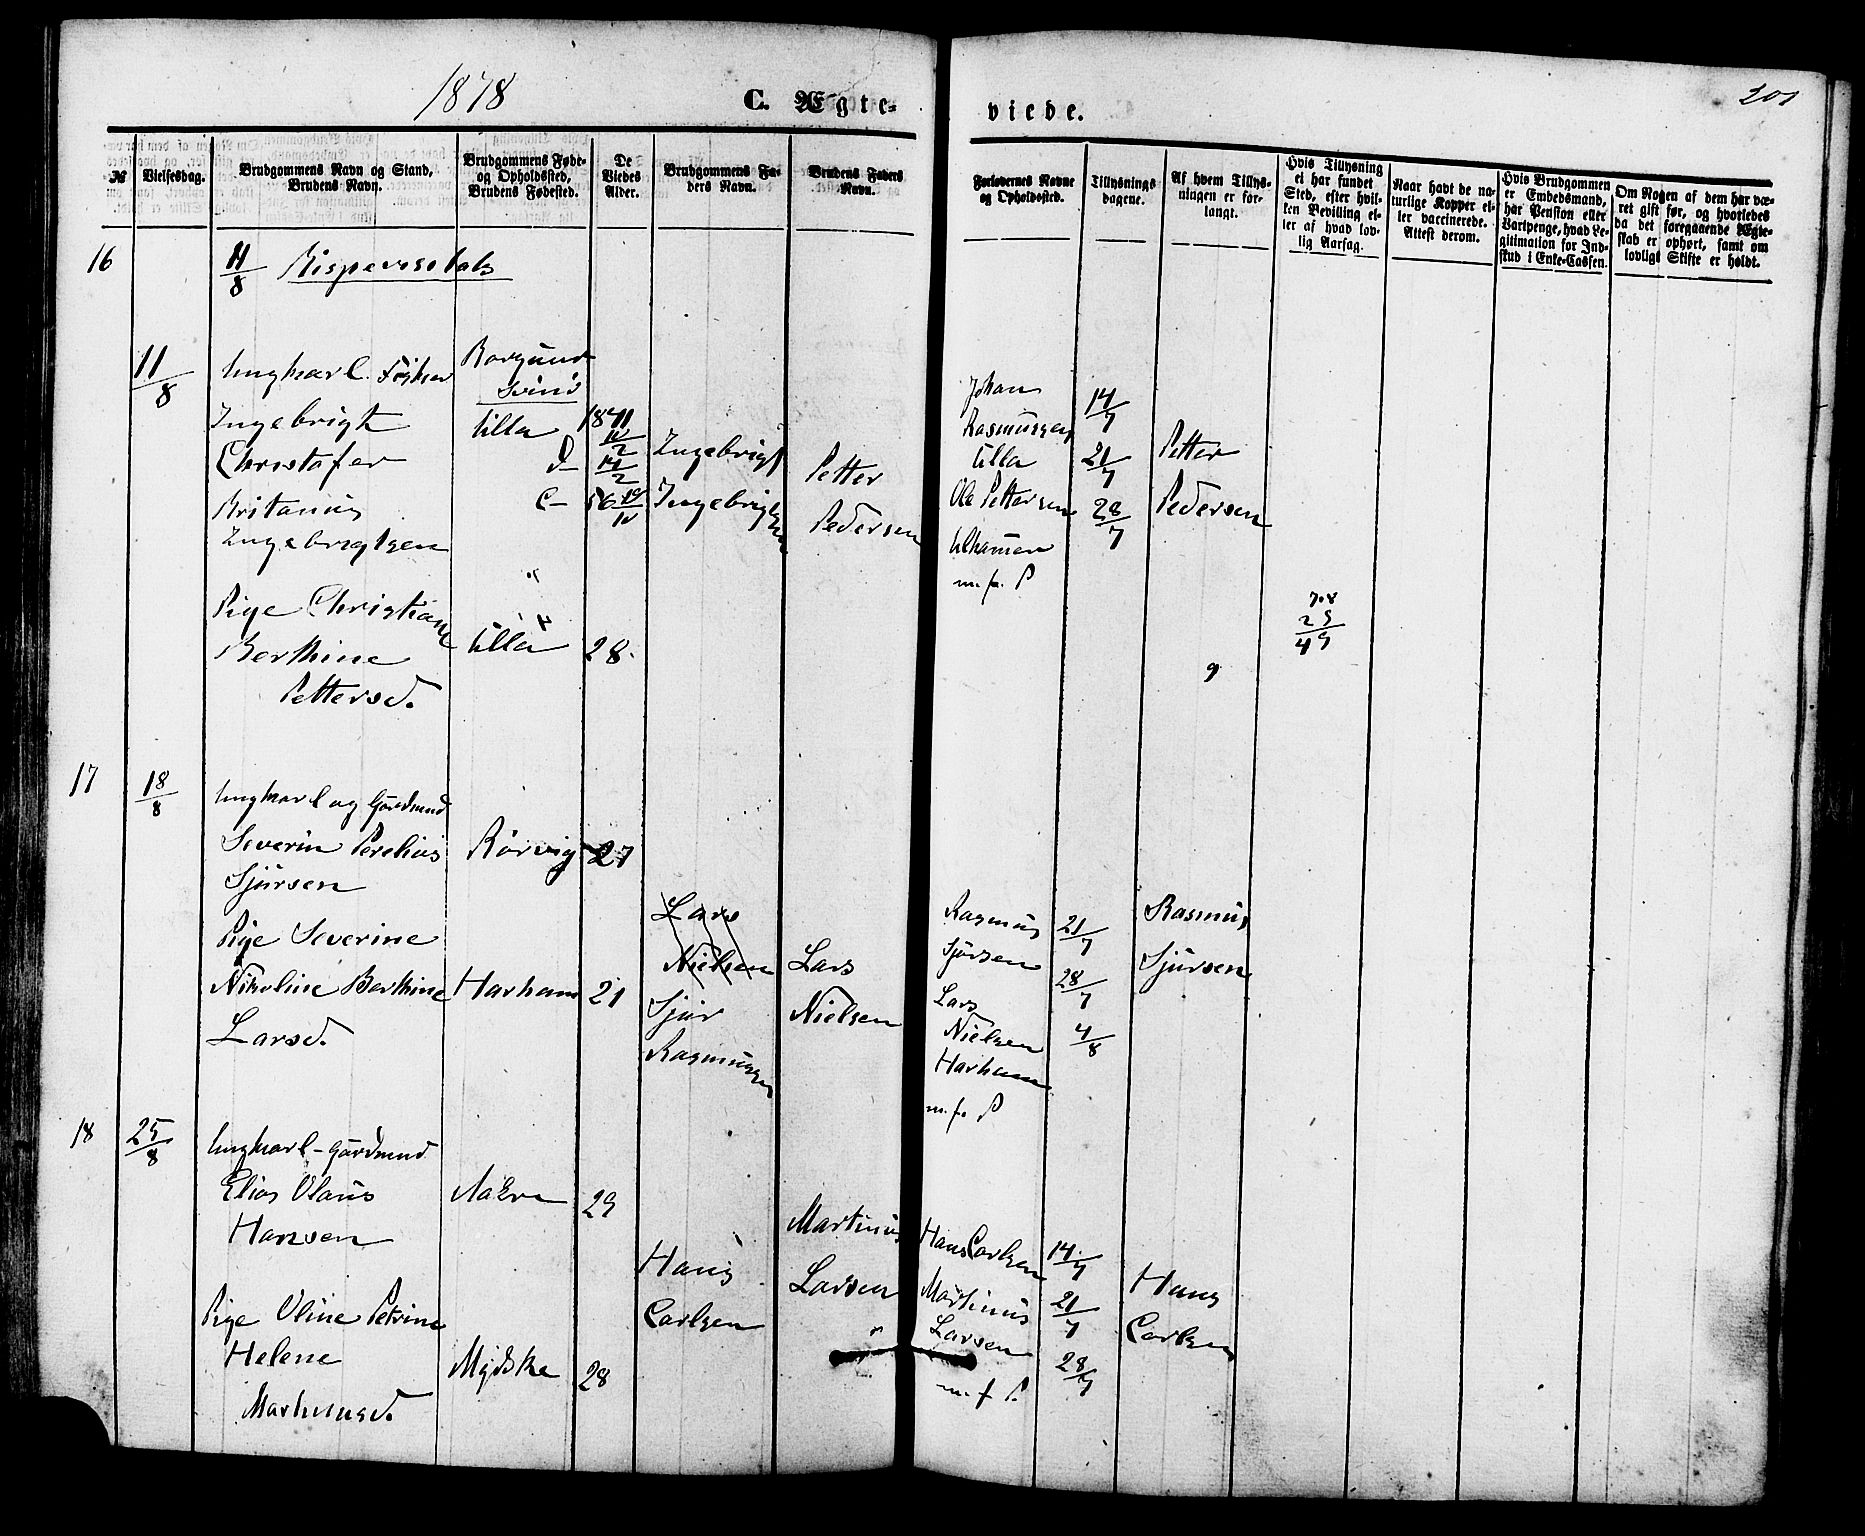 1878
C. Ægte-
viede.
201
№
Vielsesdag.
Brudgommens Navn og Stand,
Brudens Navn.
Brudgommens Føde-
og Opholdssted,
Brudens Fødested.
De
Viedes
Alder.
Brudgommens Fa-
ders Navn.
Brudens Faders
Navn.
Forlovernes Navne
og Opholdssted.
Tillysnings
dagene.
Af hvem Tillys-
ningen er for-
langt.
Hvis Tillysning
ei har fundet
Sted, efter hvil-
ken Bevilling el-
ler af hvad lov-
lig Aarsag.
Naar havt de na-
turlige Kopper el-
ler vaccinerede.
Attest derom.
Hvis Brudgommen
er Embedsmand,
har Pension eller
Vartpenge, hvad Le-
gitimation for Ind-
skud i Enke-Cassen.
Om Nogen af dem har væ-
ret gift før, og hvorledes
da det foregaaende Ægte-
skab er ophørt, samt om
lovligt Skifte er holdt.
16
11/8
11/8
Ungkarl Fisker
Ingebrigt
Christofer
Britanus
Ingebrigtsen
Borgund
Ulla
D-
C-
1841
Ingebrigt
Ingebrigtsen
Petter
Pedersen
Johan
Rasmussen
Ulla
Ole Pettersen
Ulhamer
m. f. P
14/7
21/7
28/7
Petter
Pedersen
Pige Christiane
Berthine
Pettersd.
Ulla
28
708
25
49
17
18/8
Ungkarl og Gårdmand
Severin Perelius
Sjursen
Rörvig
27
Pige Severine
Nikoline Berthine
Larsd.
Harham
21
Lars
Nielsen
Sjur
Rasmussen
Lars
Nielsen
Rasmus
Sjørsen
Lars
Nielsen
Harham
m. f. P
21/7
28/7
4/8
Rasmus
Sjursen
18
25/8
Ungkarl - Gårdmand
Elias Olaus
Hansen
Aakre
29
Pige Oline Petrine
Helene
Martinusd.
28
Hans
Carlsen
Martinus
Larsen
Hans Carlsen
Martinus
Larsen
m. f. P.
14/7
21/7
28/7
Hans
Carlsen